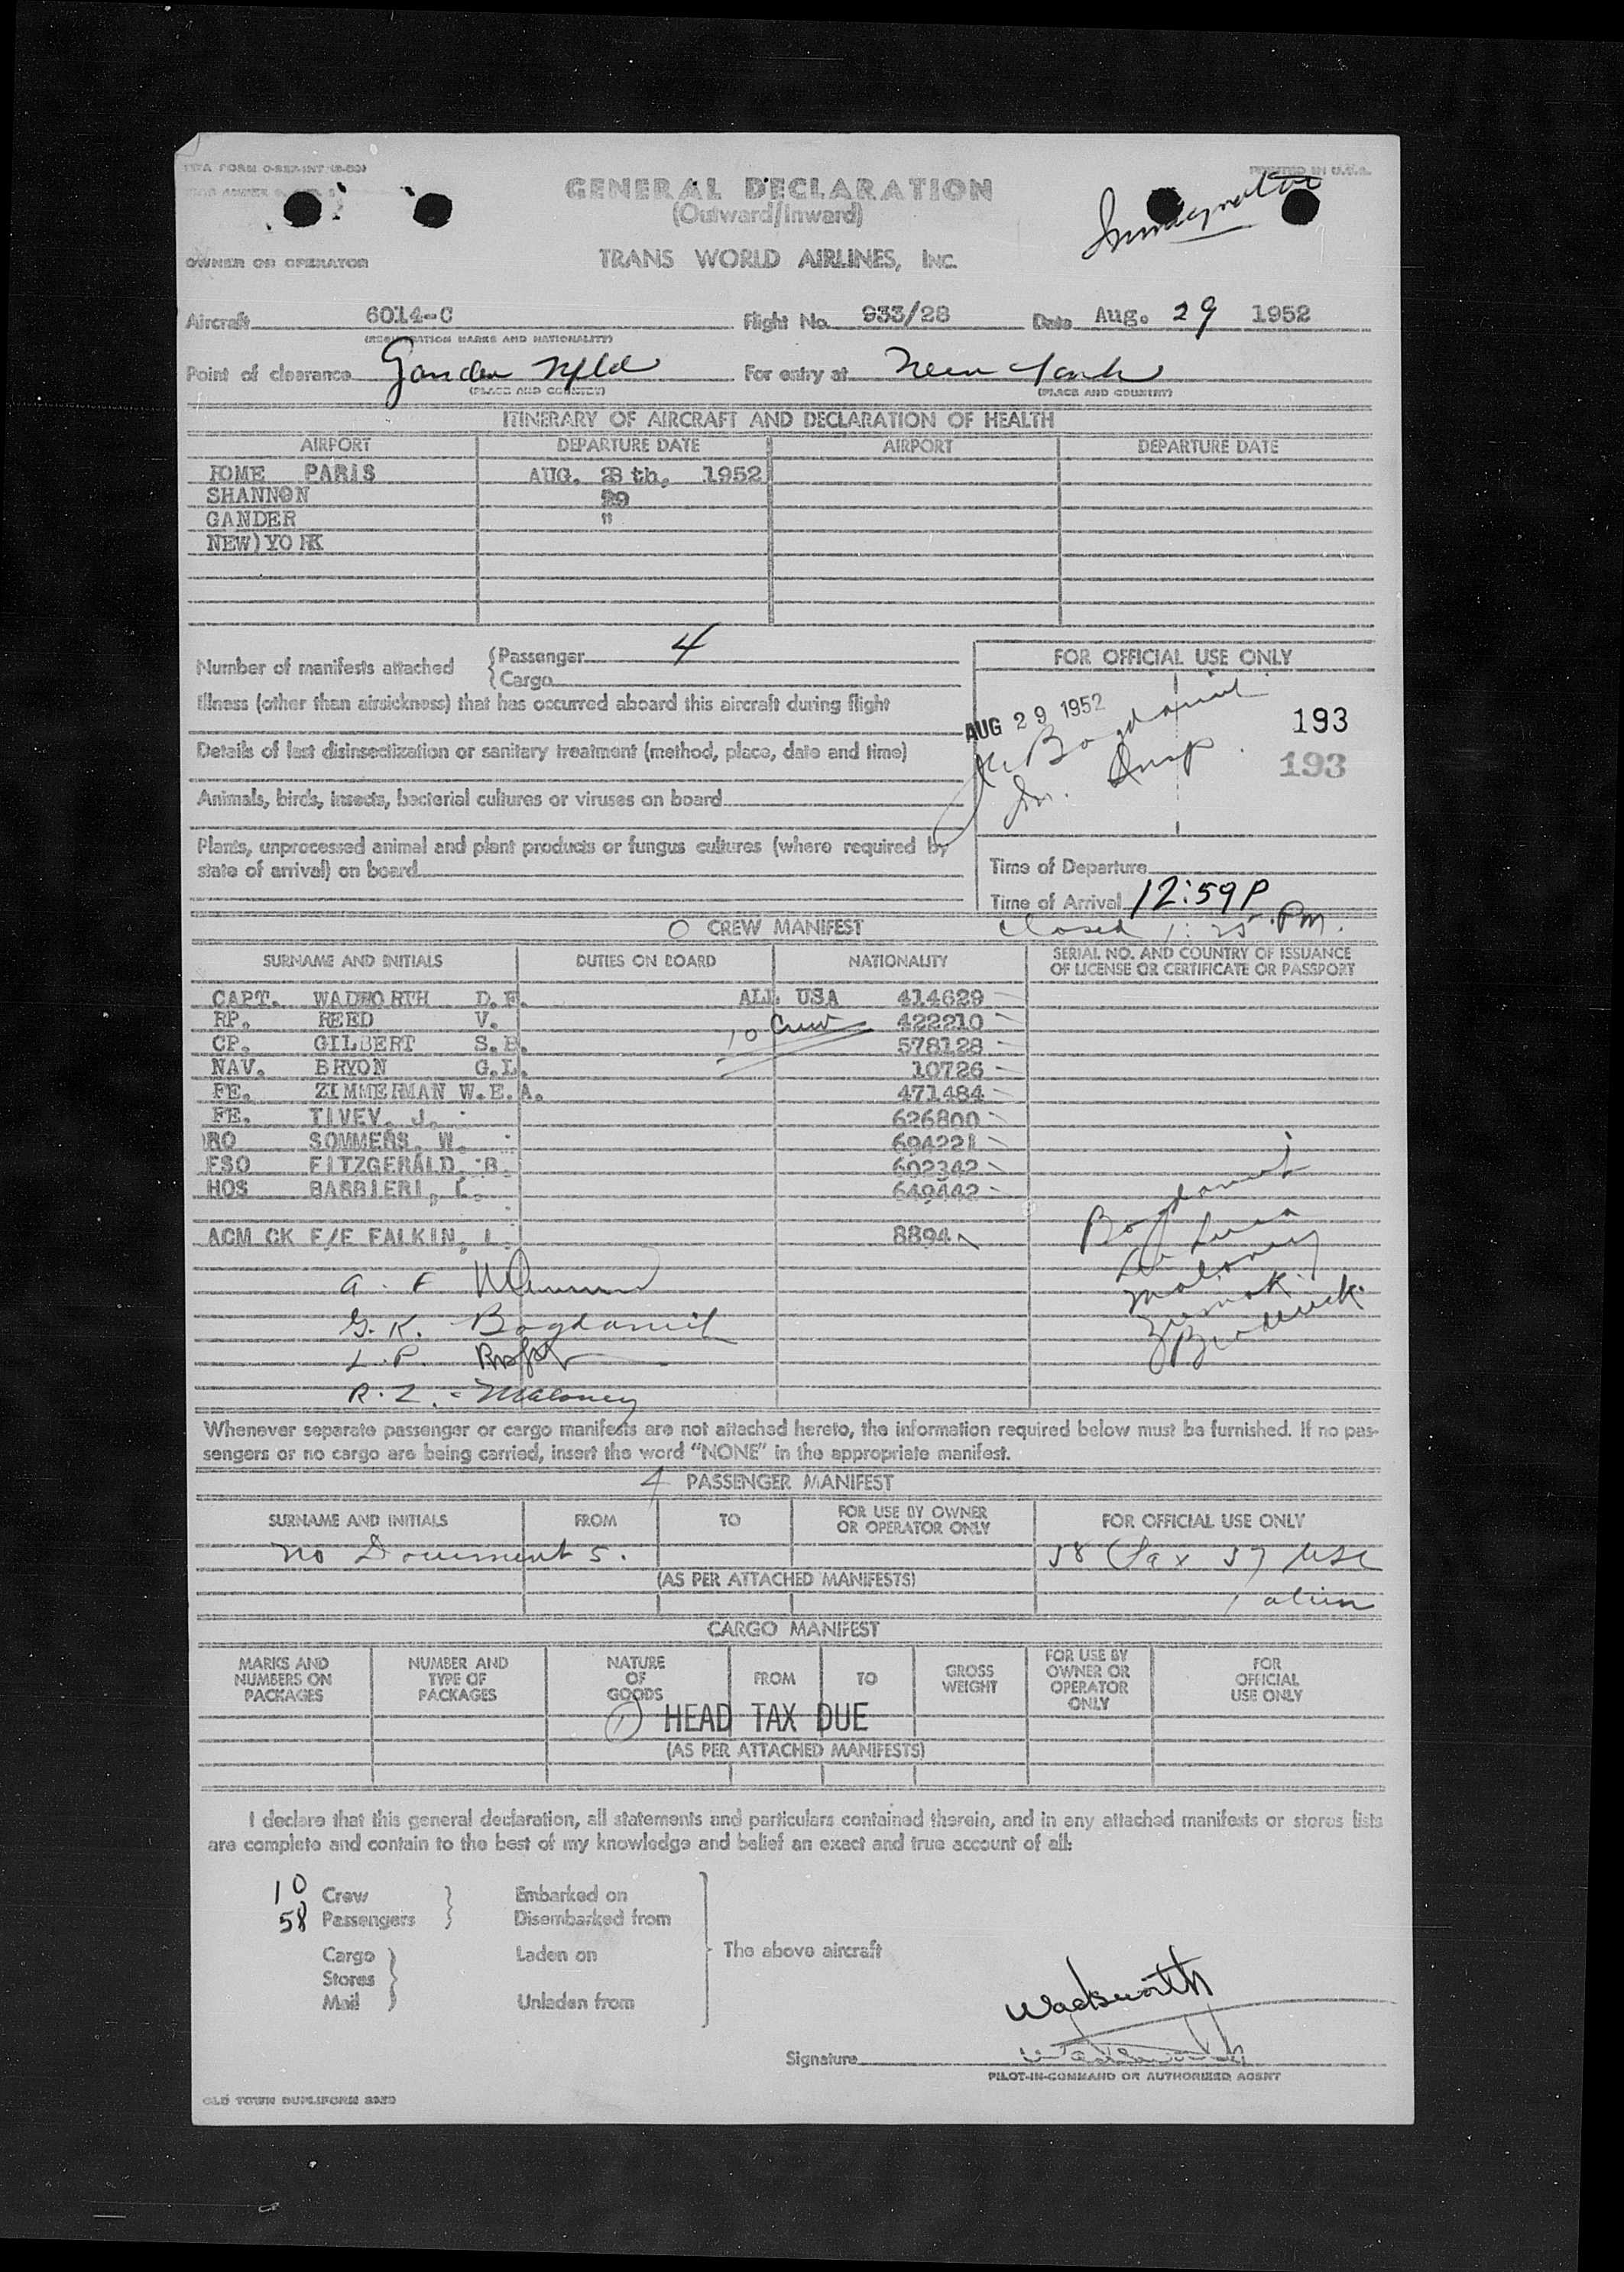 TWA FORM
PRINTED IN U.S.A.
GENERAL DECLARATION
(Outward/Inward)
Immigration
OWNER OR OPERATOR TRANS WORLD AIRLINES, INC.
Aircraft 6014-C Flight No. 933/28 Date Aug. 29 1952
(REGISTRATION MARKS AND NATIONALITY)
Point of clearance Gander Nfld For entry at New York
(PLACE AND COUNTRY) (PLACE AND COUNTRY)
ITINERARY OF AIRCRAFT AND DECLARATION OF HEALTH
AIRPORT DEPARTURE DATE AIRPORT DEPARTURE DATE
ROME PARIS AUG. 28 th, 1952
SHANNON 29
GANDER "
NEW)YORK
Number of manifests attached {Passenger 4
{Cargo
FOR OFFICIAL USE ONLY
Illness (other than airsickness) that has occurred aboard this aircraft during flight
AUG 29 1952 193
Bogdanich
Details of last disinsectization or sanitary treatment (method, place, date and time)
Im. Insp. 193
Animals, birds, insects, bacterial cultures or viruses on board
Plants, unprocessed animal and plant products or fungus cultures (where required by
state of arrival) on board
Time of Departure
Time of Arrival 12:59P
closed 1:25 PM.
O CREW MANIFEST
SURNAME AND INITIALS DUTIES ON BOARD NATIONALITY SERIAL NO. AND COUNTRY OF ISSUANCE
OF LICENSE OR CERTIFICATE OR PASSPORT
CAPT. WADWORTH D.F. ALL USA 414629
RP. REED V. 10 Crew 422210
CP. GILBERT S.B. 578128
NAV. BRYON G.L. 10726
FE. ZIMMERMAN W.E.A. 471484
FE. TIVEY, J. 626800
RO SOMMERS, W. 694221
FSO FITZGERALD, B. 602342
HOS BARBIERI, L. 649442
ACM CK F/E FALKIN, L. 8894
Bogdanich
De Luca
Maloney
A. F.
G. K. Bogdanich
L. P.
R. L. - Maloney
Whenever separate passenger or cargo manifests are not attached hereto, the information required below must be furnished. If no pas-
sengers or no cargo are being carried, insert the word "NONE" in the appropriate manifest.
4 PASSENGER MANIFEST
SURNAME AND INITIALS FROM TO FOR USE BY OWNER
OR OPERATOR ONLY FOR OFFICIAL USE ONLY
No Documents. 58 Pax 57 USC
(AS PER ATTACHED MANIFESTS)
1 alien
CARGO MANIFEST
MARKS AND
NUMBERS ON
PACKAGES
NUMBER AND
TYPE OF
PACKAGES
NATURE
OF
GOODS
FROM TO
GROSS
WEIGHT
FOR USE BY
OWNER OR
OPERATOR
ONLY
FOR
OFFICIAL
USE ONLY
1 HEAD TAX DUE
(AS PER ATTACHED MANIFESTS)
I declare that this general declaration, all statements and particulars contained therein, and in any attached manifests or stores lists
are complete and contain to the best of my knowledge and belief an exact and true account of all:
10 Crew } Embarked on
58 Passengers } Disembarked from
Cargo } Laden on The above aircraft
Stores }
Mail } Unladen from
Wadsworth
Signature
PILOT-IN-COMMAND OR AUTHORIZED AGENT
OLD TOWN DUPLIFORM